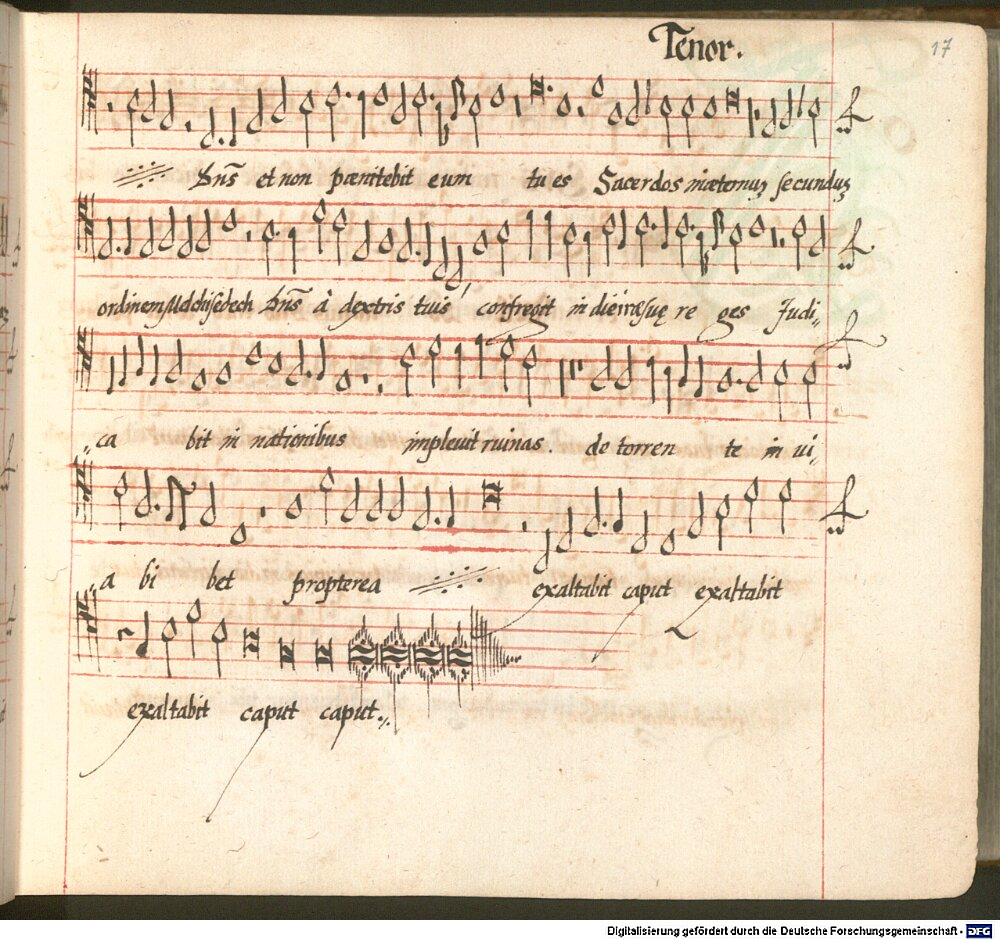 Tenor.
17
Dns̄ et non pænitebit eum tu es Sacerdos inæternuȝ secunduȝ
ordinem Melchisedech Dns̄ à dextris tuis confregit in die iræ suę re ges Judi„
„ca bit in nationibus impleuit ruinas. de torren te in ui„
„a bi bet propterea exaltabit caput exaltabit
exaltabit caput caput.
Digitalisierung gefördert durch die Deutsche Forschungsgemeinschaft - DFG